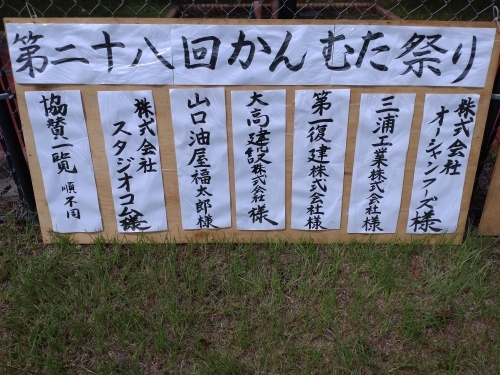 第二十八回かんむた祭り
協賛一覧 順不同
株式会社
スタジオコム様
山口油屋福太郎様
大高建設株式会社 様
第一復建株式会社様
三浦工業株式会社様
株式会社
オーシャンフーズ様